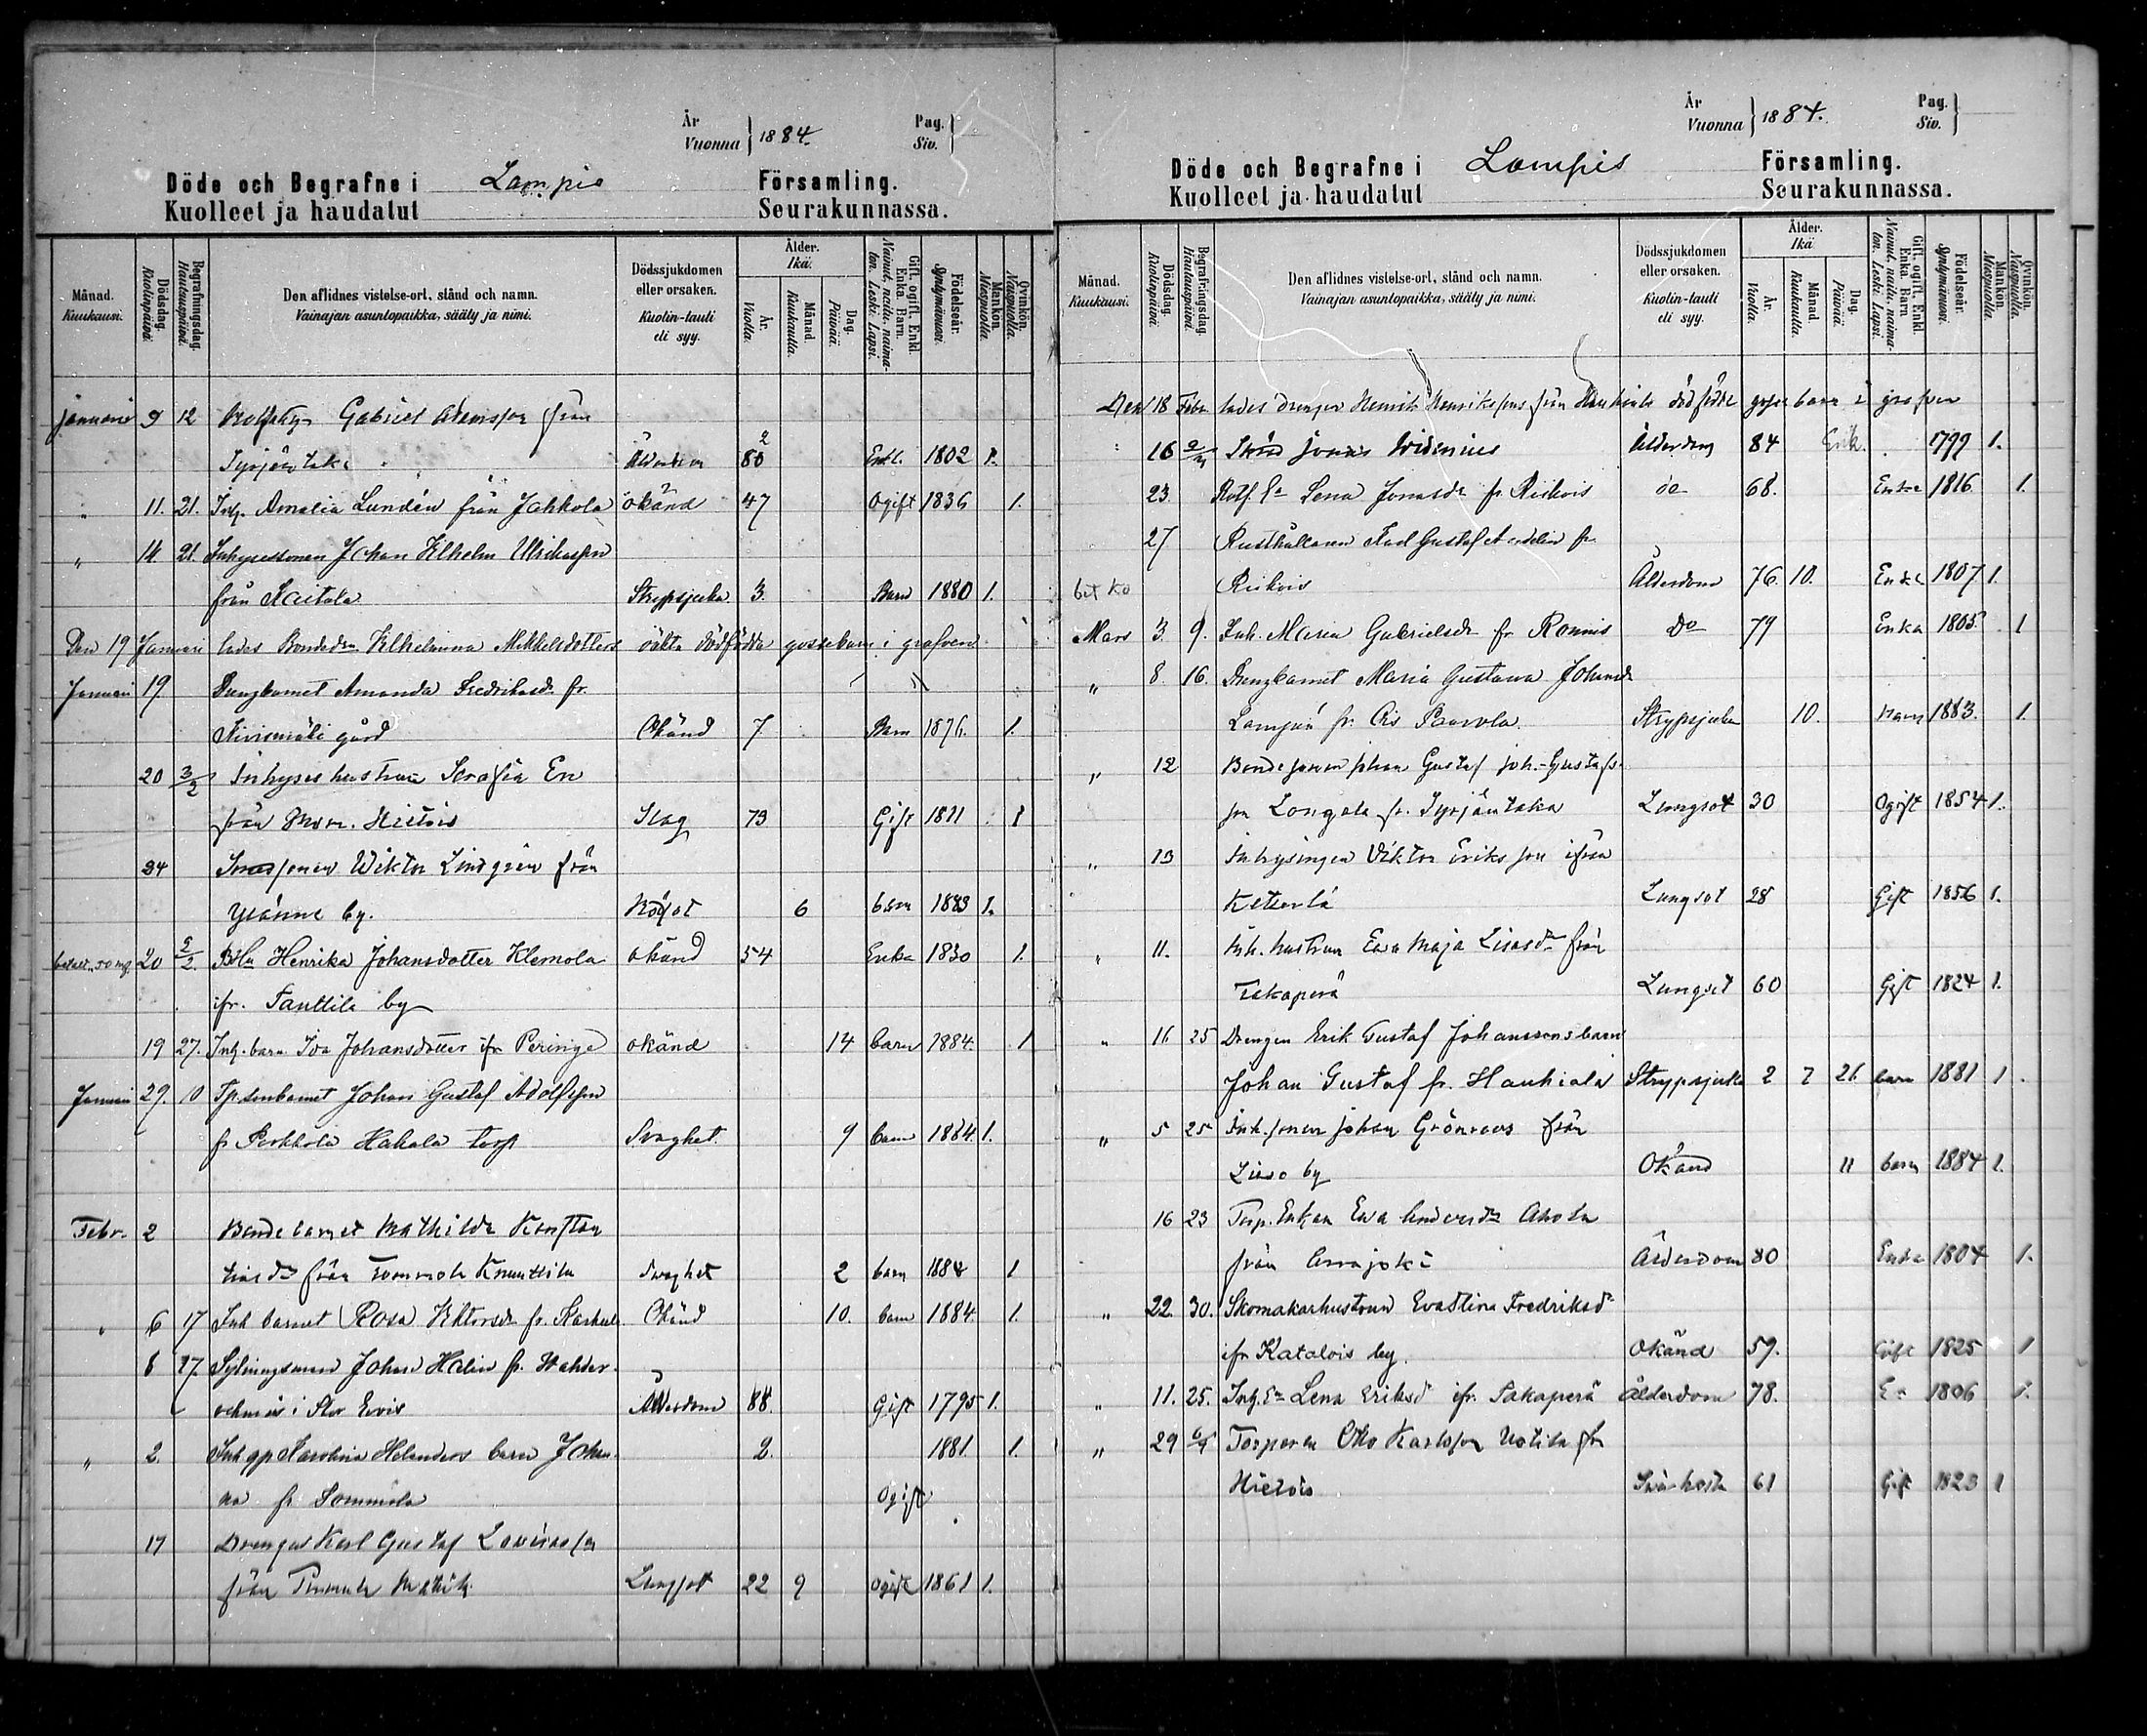 År
Vuonna } 1884.
Pag.
Siv. }
Döde och Begrafne i Lampis Församling.
Kuolleet ja haudatut Seurakunnassa.
Månad. Kuukausi.
Dödsdag. Kuolinpäivä.
Begrafningsdag. Hautauspäivä.
Den aflidnes vistelse-ort, stånd och namn.
Vainajan asuntopaikka, sääty ja nimi.
Dödssjukdomen eller orsaken.
Kuolin-tauti eli syy.
Ålder. Ikä.
År. Vuotta.
Månad. Kuukautta.
Dag. Päivää.
Gift, ogift, Enkl. Enka Barn.
Nainut, naitu, naimaton. Leski. Lapsi.
Födelseår. Syntymävuosi.
Mankön. Miespuolia.
Qvinkön. Naispuolia.
Januari 9 12 Gabriel Adamsson från
Syrjäntaka Ålderdom 80 Enkl. 1802 1.
" 11. 21. Inh. Amalia Lundén från Jahkola okänd 47 Ogift 1836 1.
" 14. 21. Inhysessonen Johan Wilhelm Ulrikasson
från Kaitala Strypsjuka 3. Barn 1880 1.
Den 19 Januari lades Bondedn Wilhelmina Mikkelsdotters oäkta dödfödda gossebarn i grafven
Januari 19 Drengbarnet Amanda Fredriksd. fr.
Kivismäki gård Okänd 7 Barn 1876. 1.
20 3/2 Inhyses hustrun Serafia En
från Hietois Slag 73 Gift 1811 1
24 Wiktor Lindgren från
by. 6 barn 1883 1.
20 2/2. Henrika Johansdotter Klemola okänd 54 Enka 1830 1.
ifr. Tanttila by
19 27. Inh. barn Ida Johansdotter ifr Peringe okänd 14 barn 1884. 1
Januari 29. 10 Tp.sonbarnet Johan Gustaf Adolfsson
fr Porkkola Hakala torp Svaghet. 9 barn 1884 1.
Febr. 2 Bondebarnet Mathilda
från Tommola Knuuttila Svaghet 2 barn 1884 1
" 6 17 Inh barnet Rosa Wiktorsd. fr. Okänd 10. barn 1884. 1.
8 27. Johan Helin fr.
i Stor Evois Ålderdom 88. Gift 1795 1.
" 2. Inh qp Karolina Helanders barn Johan
na fr Sommola 2. Ogift 1881. 1.
17 Drengen Karl Gustaf
från Lungsot 22 9 ogift 1861 1.
År
Vuonna } 1884.
Pag.
Siv. }
Döde och Begrafne i Lampis Församling.
Kuolleet ja haudatut Seurakunnassa.
Månad. Kuukausi.
Dödsdag. Kuolinpäivä.
Begrafningsdag. Hautauspäivä.
Den aflidnes vistelse-ort, stånd och namn.
Vainajan asuntopaikka, sääty ja nimi.
Dödssjukdomen eller orsaken.
Kuolin-tauti eli syy.
Ålder. Ikä.
År. Vuotta.
Månad. Kuukautta.
Dag. Päivää.
Gift, ogift, Enkl. Enka Barn
Nainut, naitu, naimaton. Leski. Lapsi.
Födelseår. Syntymävuosi.
Mankön. Miespuolia.
Qvinkön. Naispuolia.
Den 18 Febr lades drengen Henrik Henrikssons från Hauhiala dödfödde gossebarn i grafven
16 Jonas Widenius Ålderdom 84 Enk. 1799 1.
23. Lena Jonasdr fr Riikois do 68. Enka 1816. 1.
27 Rusthållaren Karl Gustaf fr.
Riikois Ålderdom 76. 10. Enkl 1807 1.
Mars 3. 9. Inh. Maria Gabrielsdr fr Ronnis Do 79 Enka 1805. 1
" 8. 16. Drengbarnet Maria Gustava Johansdr
Lampén fr. Paavola. Strypsjuka 10. barn 1883. 1.
" 12 Bondesonen Johan Gustaf Joh.-Gustafs-
son fr. Syrjäntaka Lungsot 30 Ogift 1854 1.
" 13 Inhysingen Viktor Eriksson ifrån
Lungsot 28 Gift 1856 1.
" 11. Inh. hustrun Eva Maja Lisasdr från
Takaperä Lungsot 60 Gift 1824 1.
" 16 25 Drengen Erik Gustaf Johanssons barn
Johan Gustaf fr. Hauhiala Strypsjuka 2 7 21. barn 1881 1.
" 5 25 Inh. sonen Johan Grönroos från
Lieso by Okänd 11 barn 1884 1.
16 23 Torp. Enkan Eva Andersdr Ahola
från Arrajoki Ålderdom 80 Enka 1804 1.
" 22. 30. Skomakarhustrun Eva Stina Fredriksdr
ifr Katalois by. Okänd 59. Gift 1825 1
" 11. 25. Lena Eriksd ifr. Takaperä ålderdom 78. 1806 1.
" 29 6/4 Torparen Otto Karlsson Uotila fr
Hietois 61 Gift 1823 1